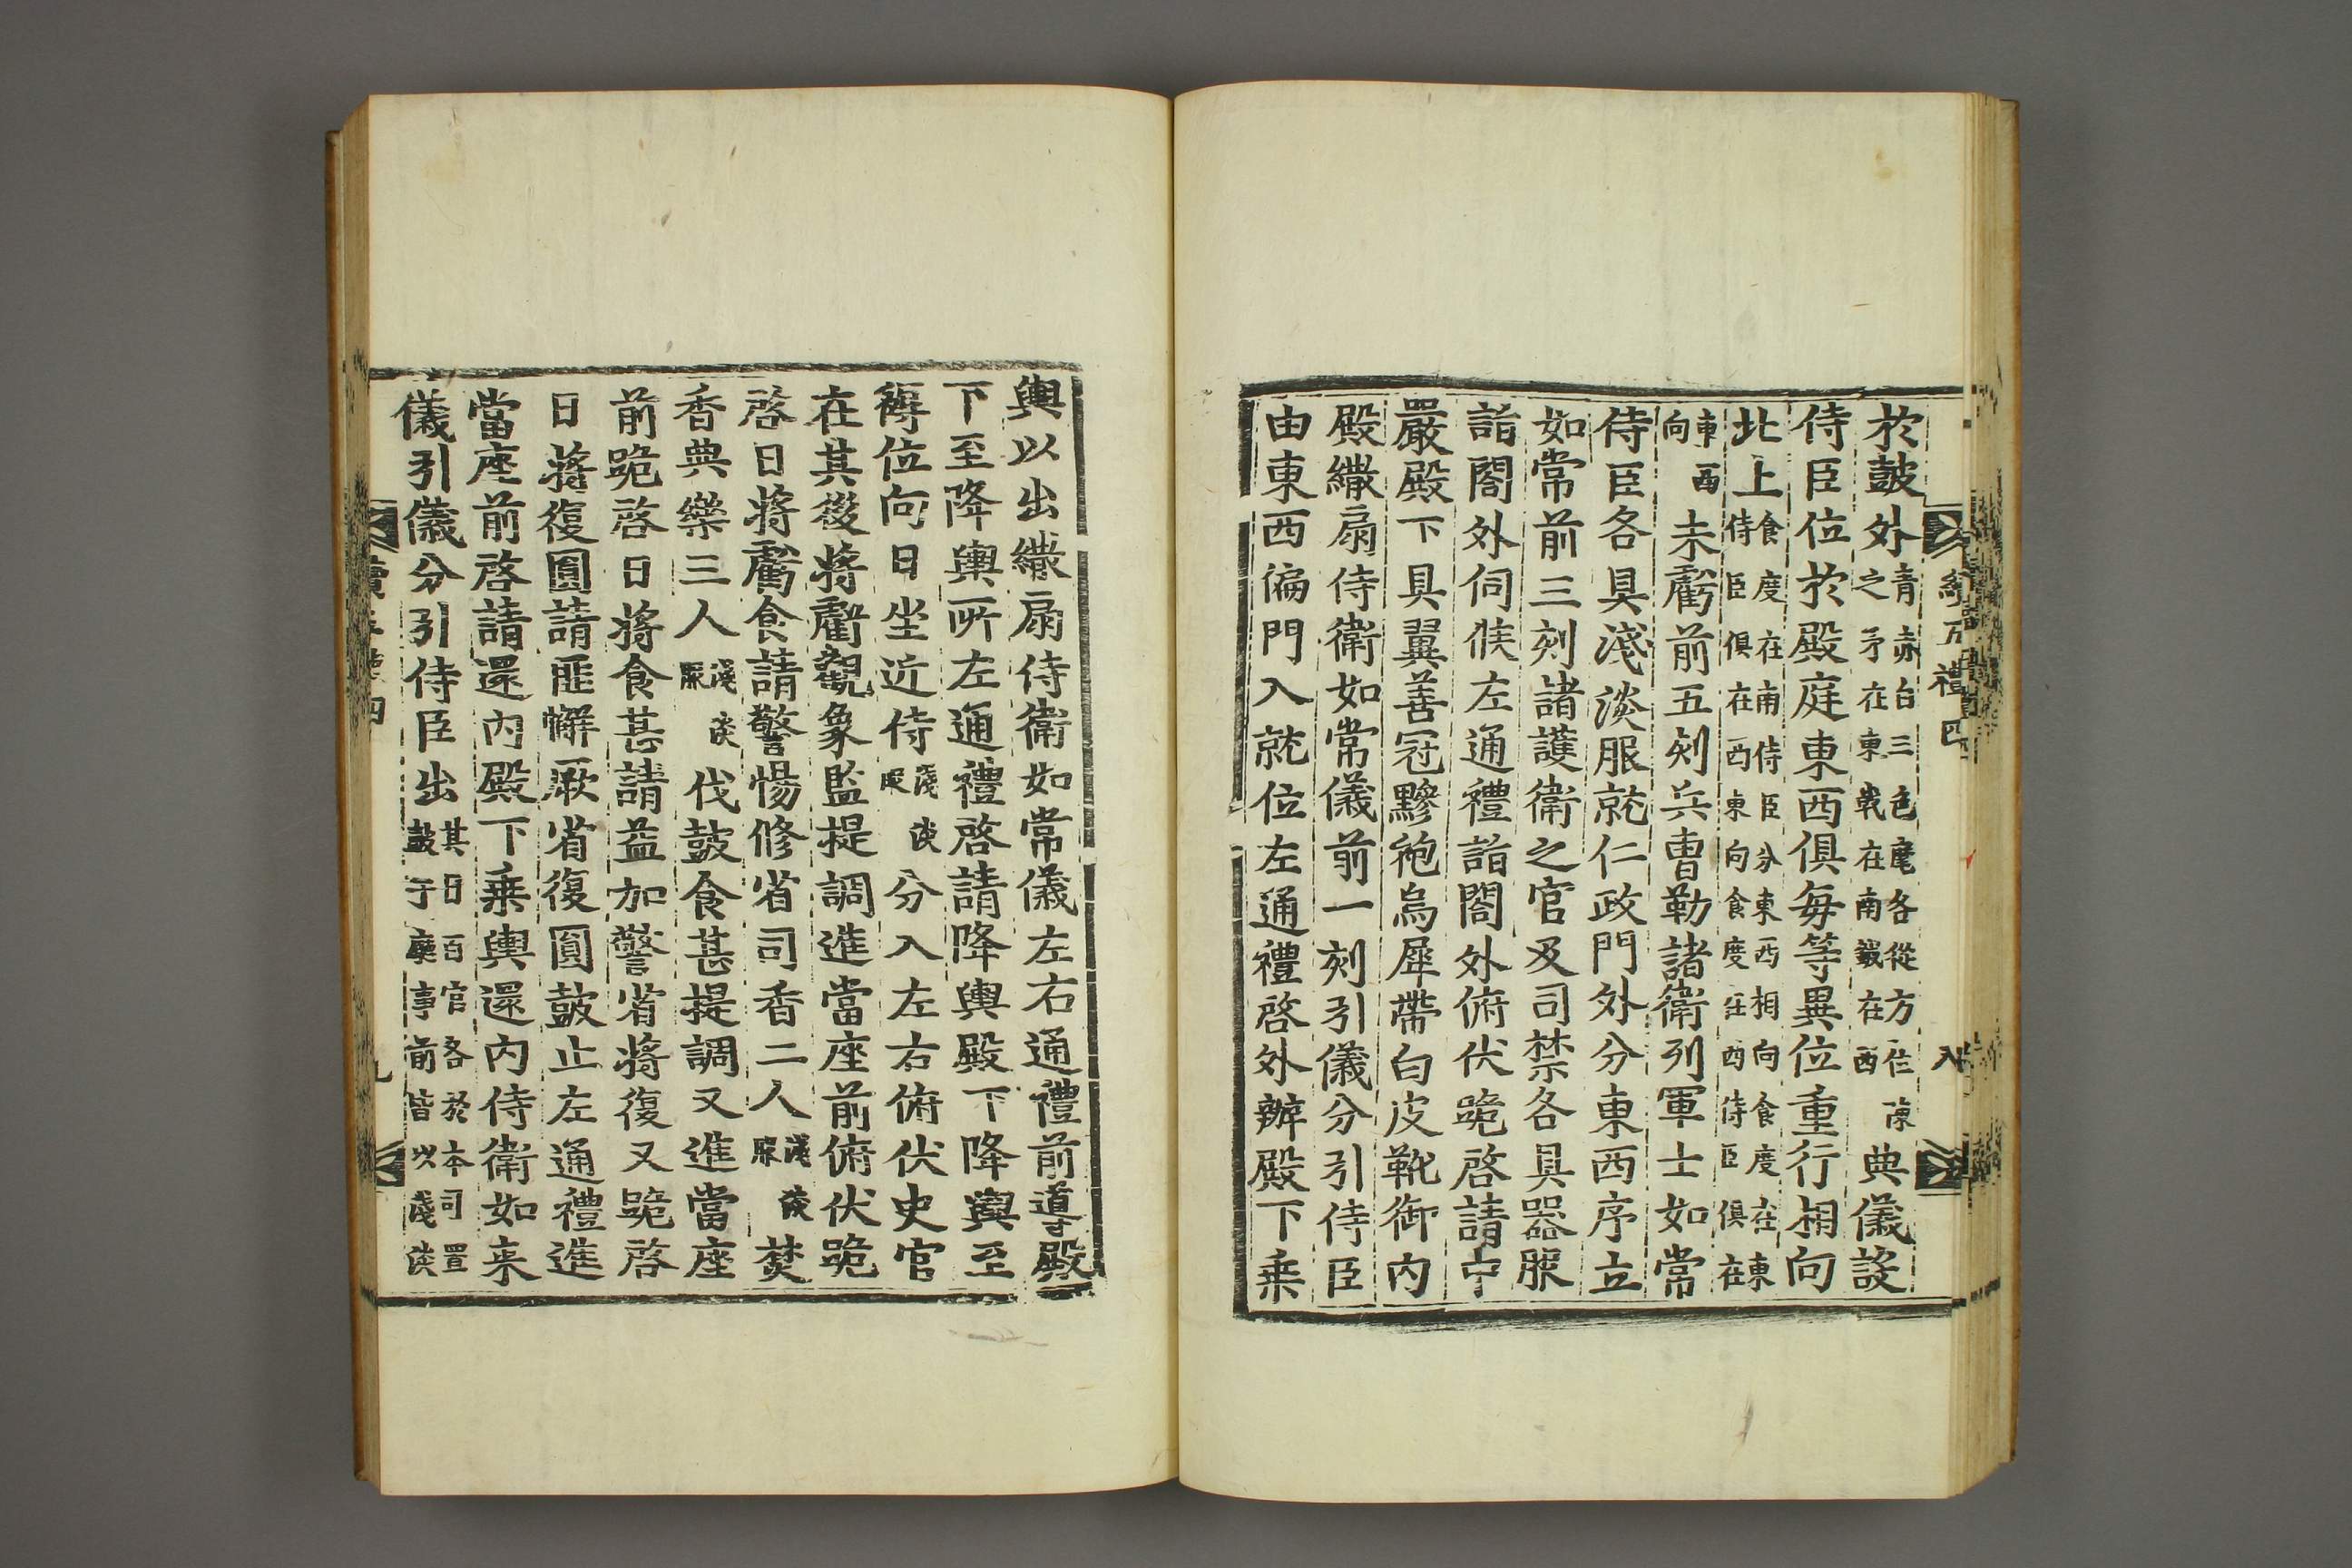 於鼓外青赤白三色麾各從方色陳之矛在東戟在南鉞在西典儀設
侍臣位於殿庭東西俱每等異位重行相向
北上食度在南侍臣分東西相向食度在東侍臣俱在西東向食度在西侍臣俱在
東西向未虧前五刻兵曹勒諸衛列軍士如常
侍臣各具淺淡服就仁政門外分東西序立
如常前三刻諸護衛之官及司禁各具器服
詣閤外伺候左通禮詣閤外俯伏跪啓請中
嚴殿下具翼善冠黲袍烏犀帶白皮靴御內
殿繖扇侍衛如常儀前一刻引儀分引侍臣
由東西偏門入就位左通禮啓外辦殿下乘
輿以出繖扇侍衛如常儀左右通禮前導殿
下至降輿所左通禮啓請降輿殿下降輿至
褥位向日坐近侍淺淡服分入左右俯伏史官
在其後將虧觀象監提調進當座前俯伏跪
啓日將虧食請警惕修省司香二人淺淡服焚
香典樂三人淺淡服伐鼓食甚提調又進當座
前跪啓日將食甚請益加警省將復又跪啓
日將復圓請匪懈厥省復圓鼓止左通禮進
當座前啓請還內殿下乘輿還內侍衛如来
儀引儀分引侍臣出其日百官各於本司置鼓于廳事前皆以淺淡